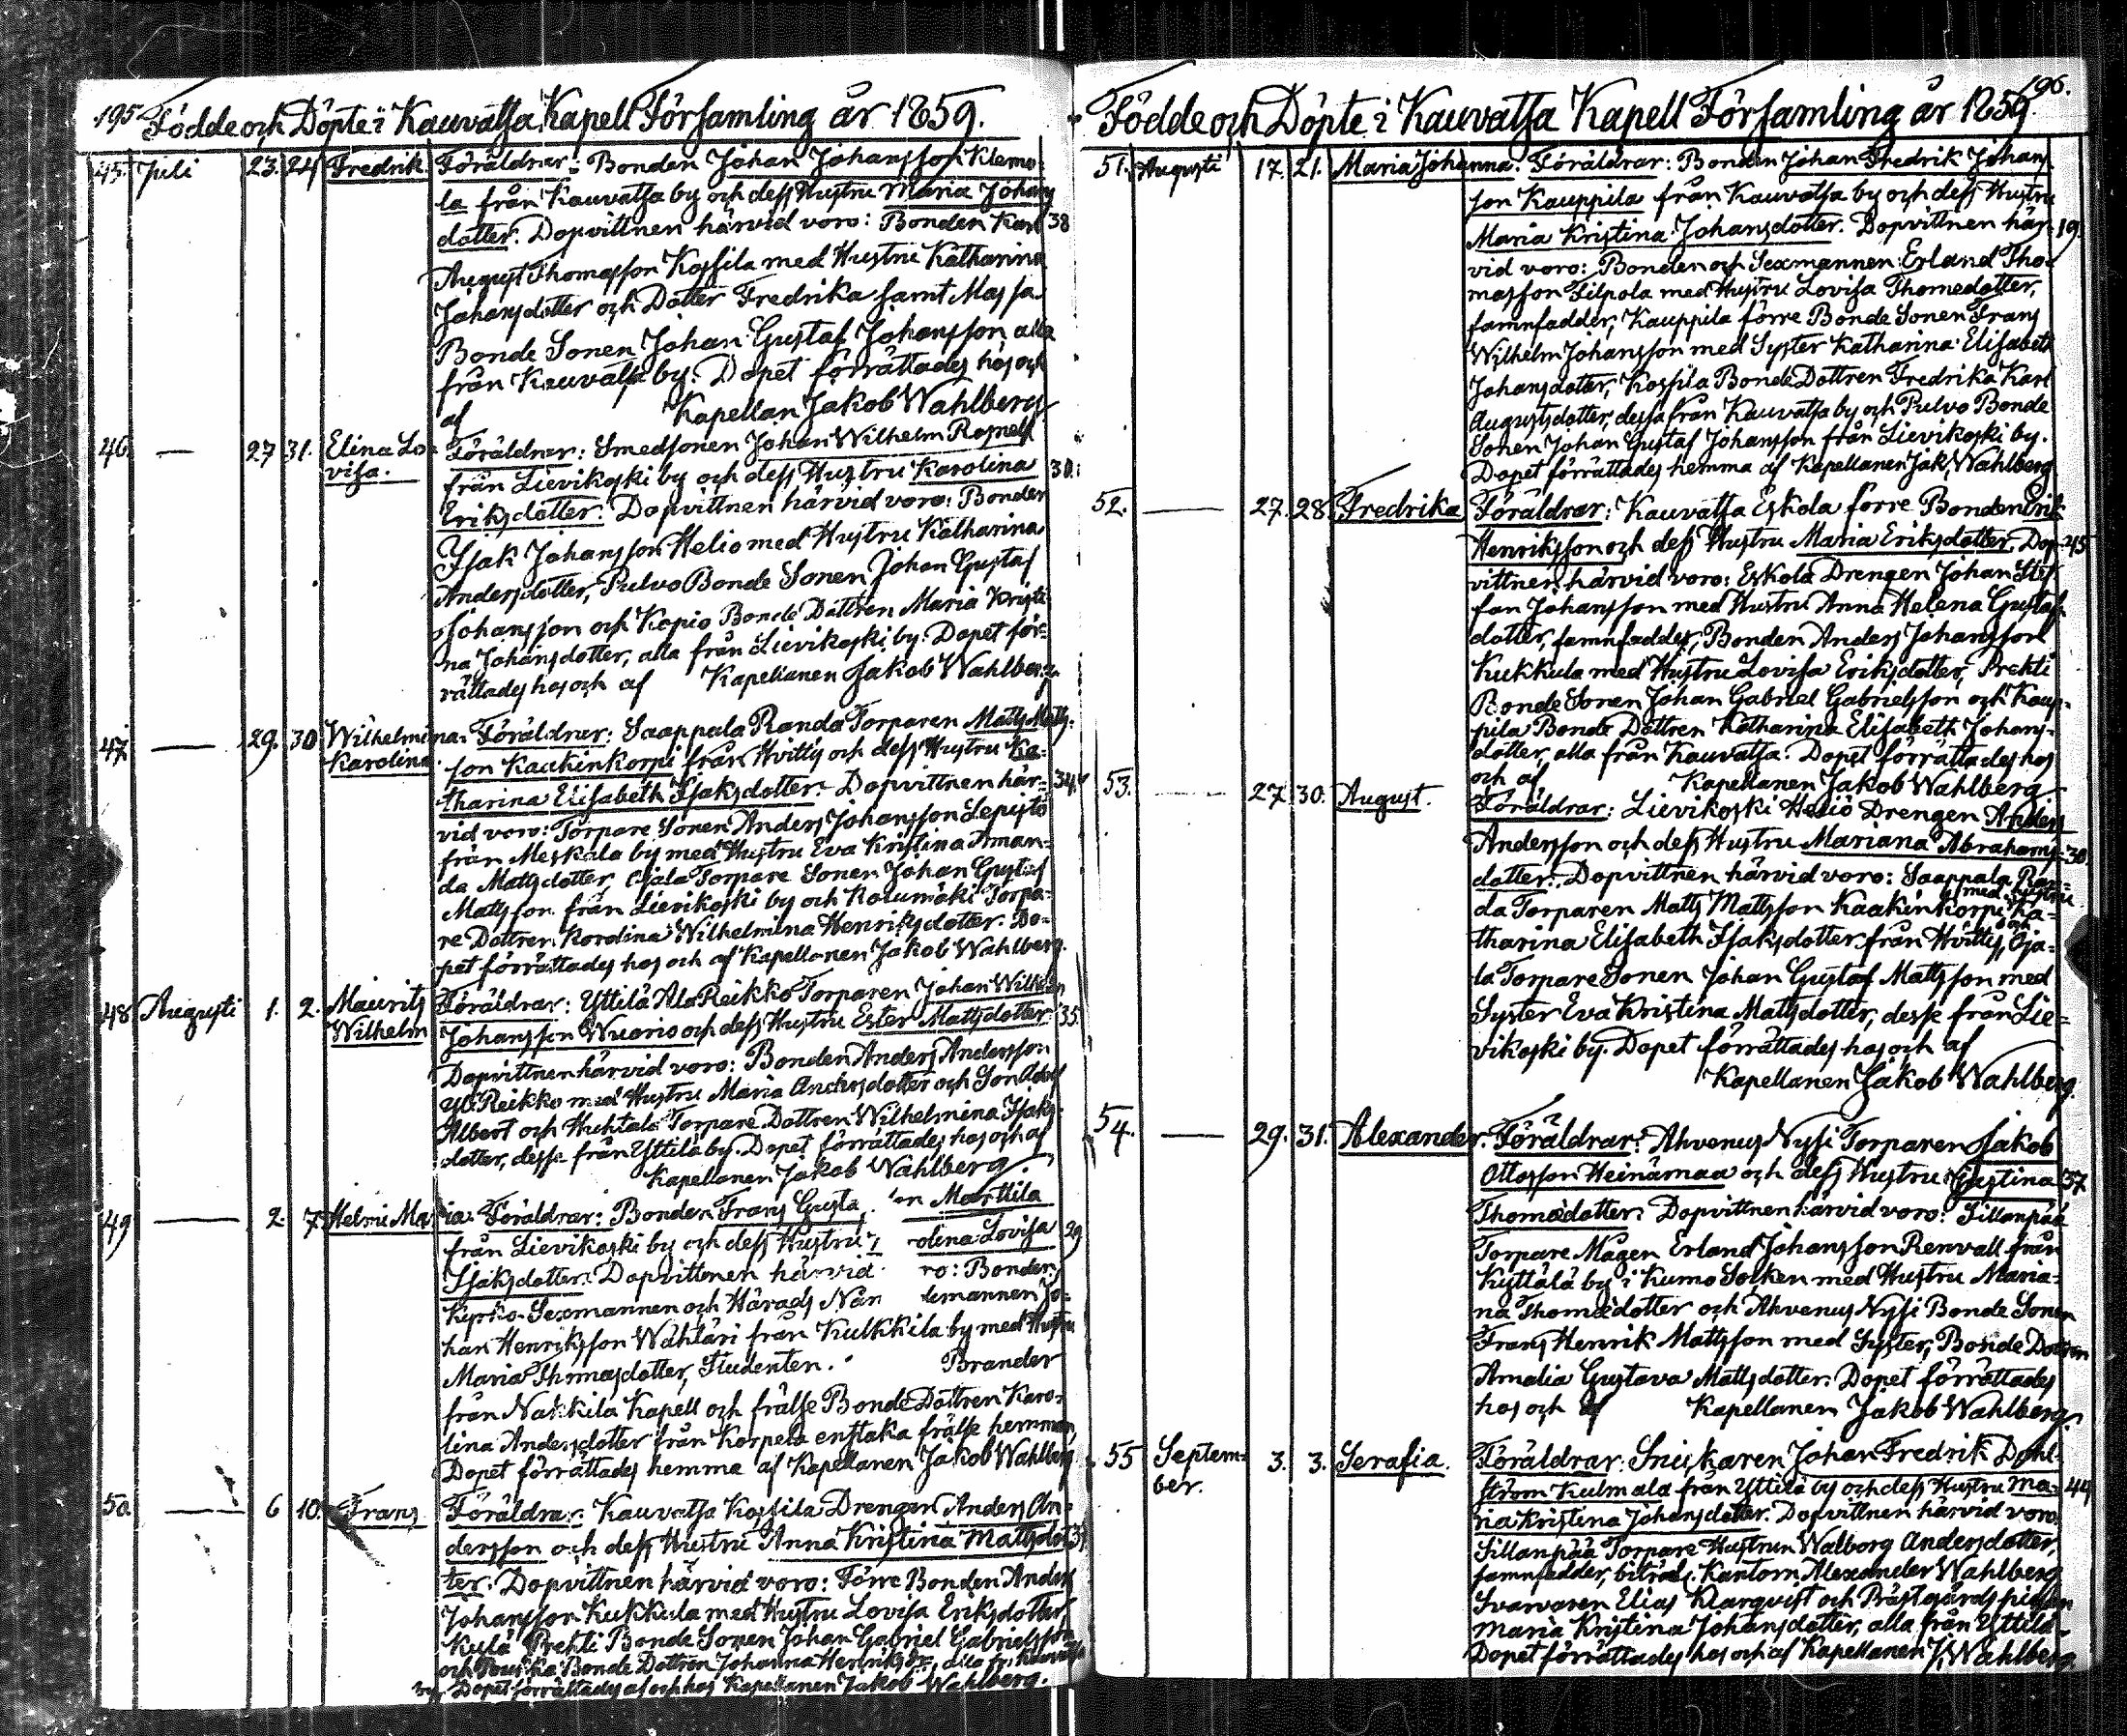 195. Födde och Döpte i Kauvatsa Kapell Församling år 1859.
45. Juli 23. 24 Fredrik. Föräldrar: Bonden Johan Johansson Klemo-
la från Kauvatsa by och dess Hustru Maria Johans
dotter. Dopvittnen härvid voro: Bonden Karl 38
August Thomasson Kossila med Hustru Katharina
Johansdotter och Dotter Fredrika samt Massa
Bonde Sonen Johan Gustaf Johansson alla
från Kauvatsa by. Dopet förrättades hos och
af Kapellan Jakob Wahlberg
46. — 27 31. Elina Lo- Föräldrar: Smedsonen Johan Wilhelm
visa. från Lievikoski by och dess Hustru Karolina 30.
Eriksdotter. Dopvittnen härvid voro: Bonden
Isak Johansson Helio med Hustru Katharina
Andersdotter, Pulvo Bonde Sonen Johan Gustaf
Johansson och Kopio Bonde Dottren Maria Kristi-
na Johansdotter, alla från Lievikoski by. Dopet för-
rättades hos och af Kapellanen Jakob Wahlberg.
47 — 29. 30 Wilhelmina Föräldrar: Saappala Randa Torparen Matts Matts-
Karolina son Kaukinkorpi från Hvittis och dess Hustru Ka-
tharina Elisabeth Isaksdotter. Dopvittnen här- 34
vid voro: Torpare Sonen Anders Johansson Lepistö
från Meskala by med Hustru Eva Kristina Aman-
da Mattsdotter, Ojala Torpare Sonen Johan Gustaf
Mattsson från Lievikoski by och Torpa-
re Dottren Wilhelmina Henriksdotter. Do-
pet förrättades hos och af Kapellanen Jakob Wahlberg.
48 Augusti 1. 2. Maurits Föräldrar: Yttilä Ala Reikko Torparen Johan Wilhelm
Wilhelm Johansson Wuorio och dess Hustru Ester Mattsdotter. 35.
Dopvittnen härvid voro: Bonden Anders Andersson
Yli Reikko med Hustru Maria Andersdotter och Son Adolf
Albert och Huhtala Torpare Dottren Wilhelmina Isaks-
dotter, desse från Yttilä by. Dopet förrättades hos och af
Kapellanen Jakob Wahlberg.
49 — 2. 7. Helmi Maria. Föräldrar: Bonden Frans Gusta en Marttila
från Lievikoski by och dess Hustru olina Lovisa 29
Isaksdotter. Dopvittnen härvid ro: Bonden
Kyrko-Sexmannen och Härads Näm demannen Jo-
han Henriksson Wähtäri från Kulkkila by med Hustru
Maria Thomasdotter, Studenten. Brander
från Nakkila Kapell och frälse Bonde Dottren Karo-
lina Andersdotter från Korpela enstaka frälse hemman,
Dopet förrättades hemma af Kapellanen Jakob Wahlberg
50. — 6 10. Frans Föräldrar: Kauvatsa Kossila Drengen Anders An-
dersson och dess Hustru Anna Kristina Mattsdot
ter. Dopvittnen härvid voro: Förre Bonden Anders
Johansson Kukkula med Hustru Lovisa Eriksdotter,
Prehti Bonde Sonen Johan Gabriel Gabrielsson
och Bonde Dottren Johanna
by. Dopet förrättades af och hos Kapellanen Jakob Wahlberg.
196.
Födde och Döpte i Kauvatsa Kapell Församling år 1859.
51. Augusti 17. 21. Maria Johanna. Föräldrar: Bonden Johan Fredrik Johans-
son Kauppila från Kauvatsa by och dess Hustru
Maria Kristina Johansdotter. Dopvittnen här- 19.
vid voro: Bonden och Sexmannen Erland Tho-
masson Filpola med Hustru Lovisa Thomedotter,
famnfadder, Kauppila förre Bonde Sonen Frans
Wilhelm Johansson med Syster Katharina Elisabeth
Johansdotter, Kossila Bonde Dottren Fredrika Karl
Augustsdotter, dessa från Kauvatsa by och Pulvo Bonde
Sonen Johan Gustaf Johansson från Lievikoski by.
Dopet förrättades hemma af Kapellanen Jak. Wahlberg
52. — 27. 28 Fredrika Föräldrar: Kauvatsa Eskola förre Bonden Erik
Henriksson och dess Hustru Maria Eriksdotter. Dop- 45
vittnen härvid voro: Eskola Drengen Johan Stef
fan Johansson med Hustru Anna Helena Gustafs-
dotter, famnfadder, Bonden Anders Johansson
Kukkula med Hustru Lovisa Eriksdotter, Prehti
Bonde Sonen Johan Gabriel Gabrielsson och Kaup-
pila Bonde Dottren Katharina Elisabeth Johans-
dotter, alla från Kauvatsa. Dopet förrättades hos
och af Kapellanen Jakob Wahlberg
53. — 27 30. August. Föräldrar: Lievikoski Helio Drengen Anders
Andersson och dess Hustru Mariana Abrahams- 30.
dotter. Dopvittnen härvid voro: Saappala Ran-
da Torparen Matts Mattsson Kaakinkorpi med Hustru Ka-
tharina Elisabeth Isaksdotter från Hvittis, och Oja-
la Torpare Sonen Johan Gustaf Mattsson med
Syster Eva Kristina Mattsdotter, desse från Lie-
vikoski by. Dopet förrättades hos och af
Kapellanen Jakob Wahlberg.
54. — 29. 31. Alexander. Föräldrar: Ahvenus Nysi Torparen Jakob
Ottosson Heinämaa och dess Hustru Justina 37
Thomasdotter. Dopvittnen härvid voro: Sillanpää
Torpare Mågen Erland Johansson Renvall från
Kyttälä by i Kumo Socken med Hustru Maria-
na Thomasdotter och Ahvenus Nysi Bonde Sonen
Frans Henrik Mattsson med Syster, Bonde Dottren
Amalia Gustava Mattsdotter. Dopet förrättades
hos och af Kapellanen Jakob Wahlberg.
55 Septem- 3. 3. Serafia. Föräldrar: Snickaren Johan Fredrik Dahl-
ber. ström Kulmala från Yttilä by och dess Hustru Ma- 44
ria Kristina Johansdotter. Dopvittnen härvid voro:
Sillanpää Torpare Hustrun Walborg Andersdotter,
famnfadder, biträd. Kantorn Alexander Wahlberg
Svarvaren Elias Klarqvist och Prästgårds pigan
Maria Kristina Johansdotter, alla från Yttilä.
Dopet förrättades hos och af Kapellanen J. Wahlberg.